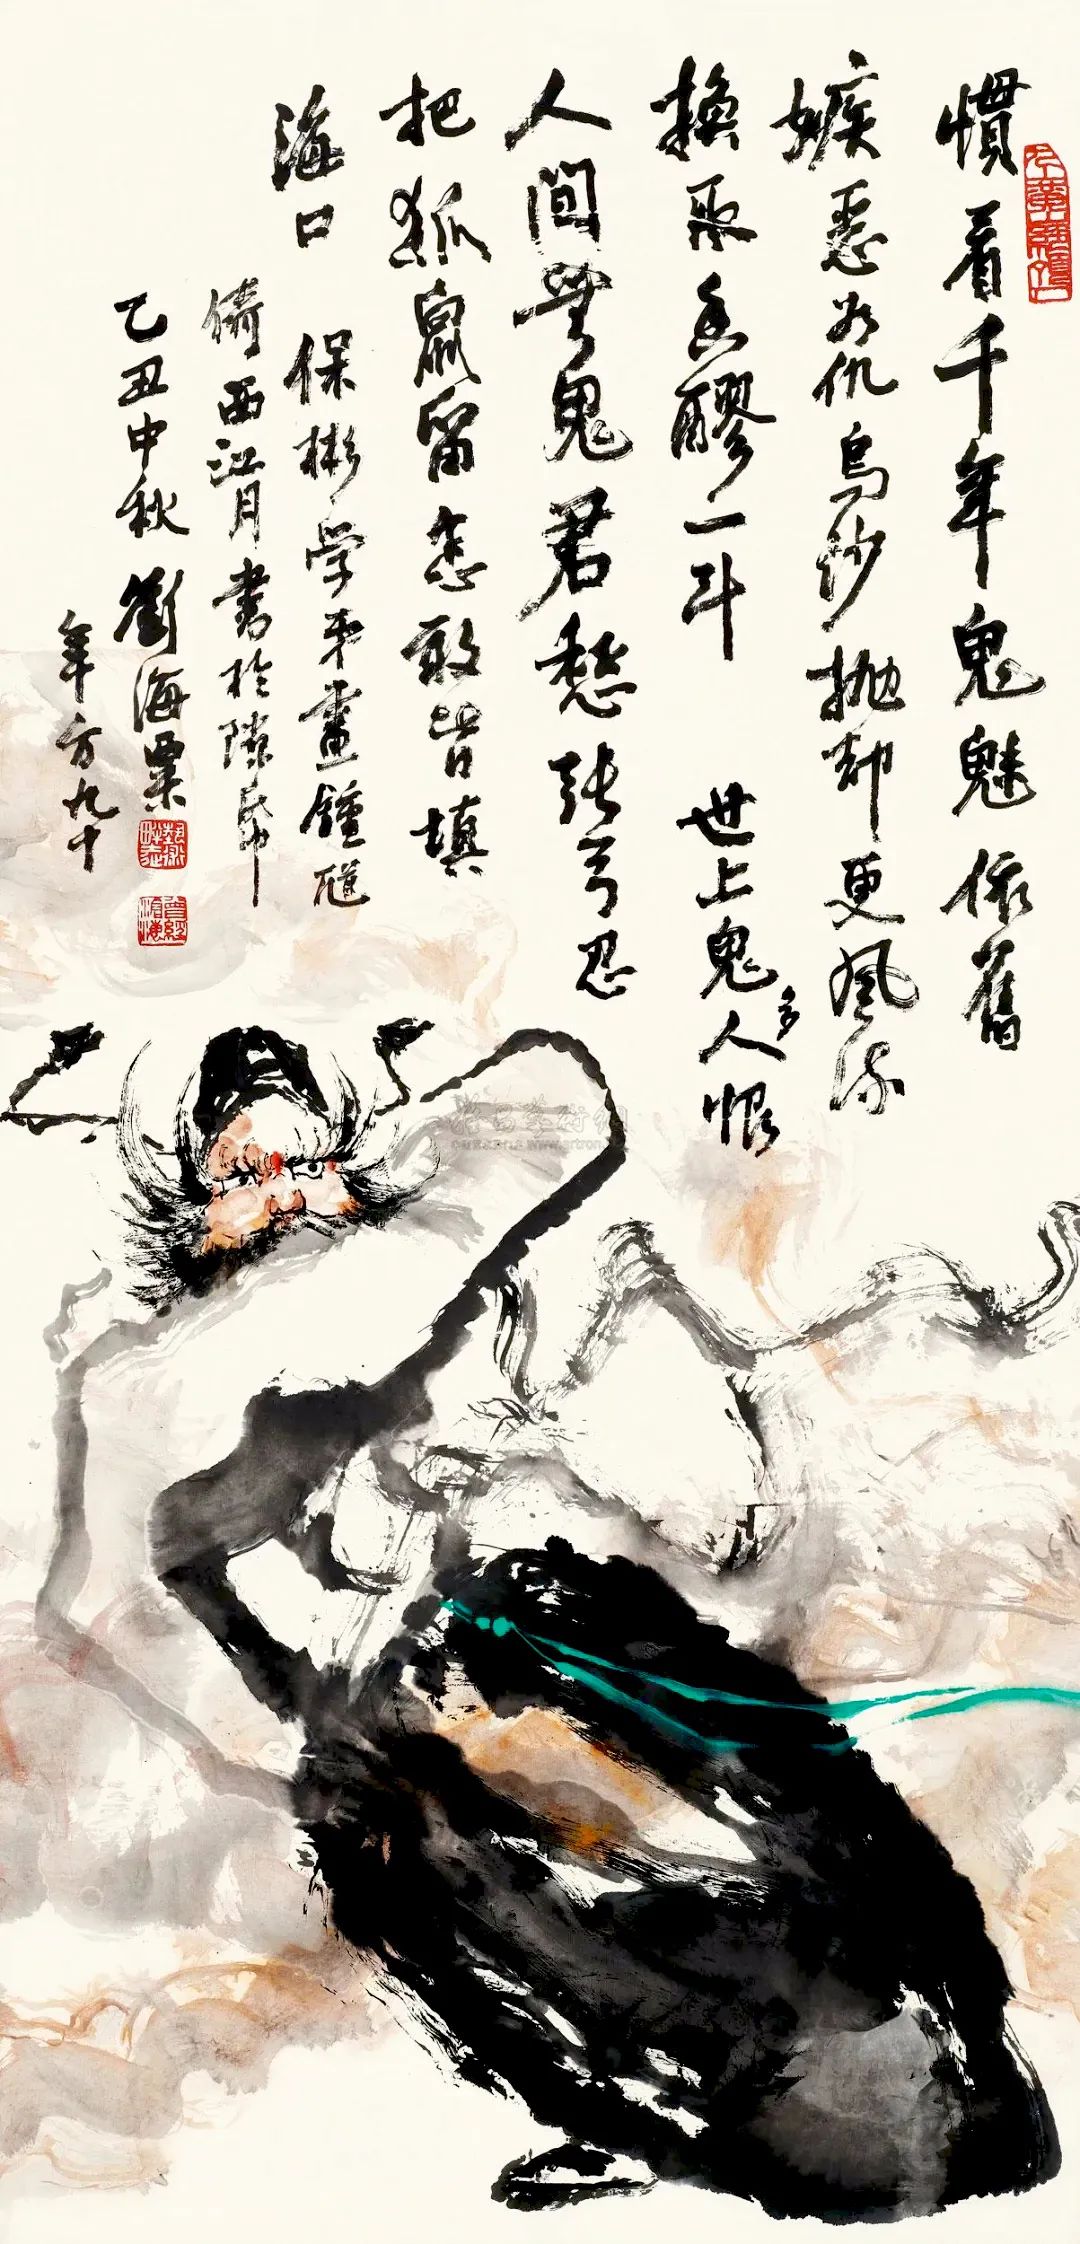 慣看千年鬼魅依舊
嫉惡如仇烏紗抛却更風流
換取香醪一斗 世上鬼多人恨
人間無鬼君愁 張弓忍
把狐鼠留 恣敢皆填
海口 保彬学弟畫鍾馗
倚西江月書於
乙丑中秋 劉海粟
年方九十